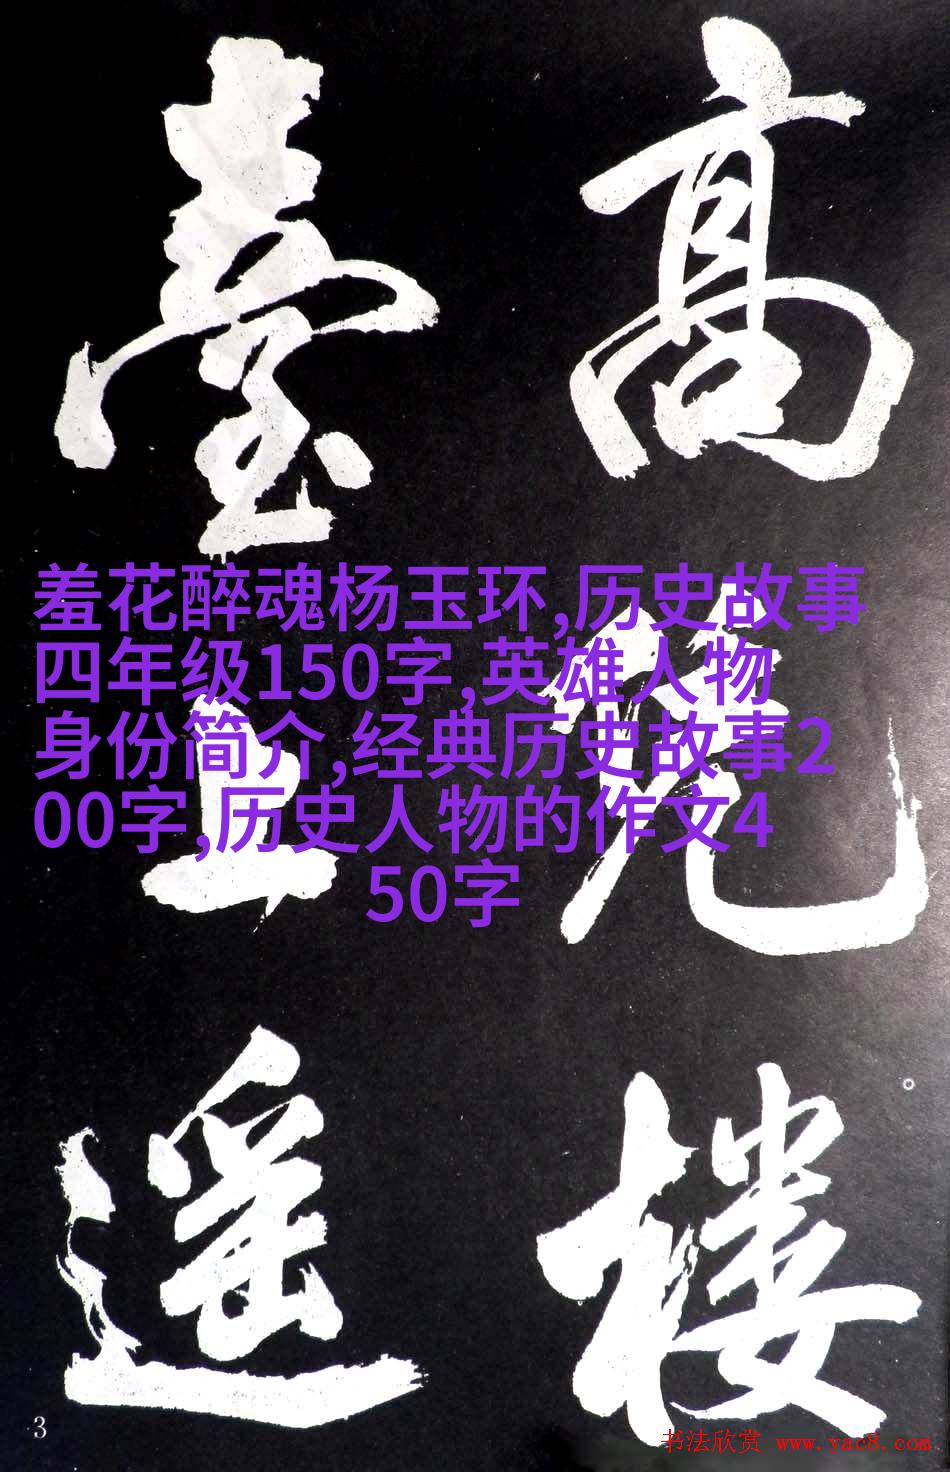 高
楼
臺上遥
羞花醉魂杨玉环,历史故事
四年级150字,英雄人物
身份简介,经典历史故事2
00字,历史人物的作文4
50字
3
书法欣赏 www.yac8.com